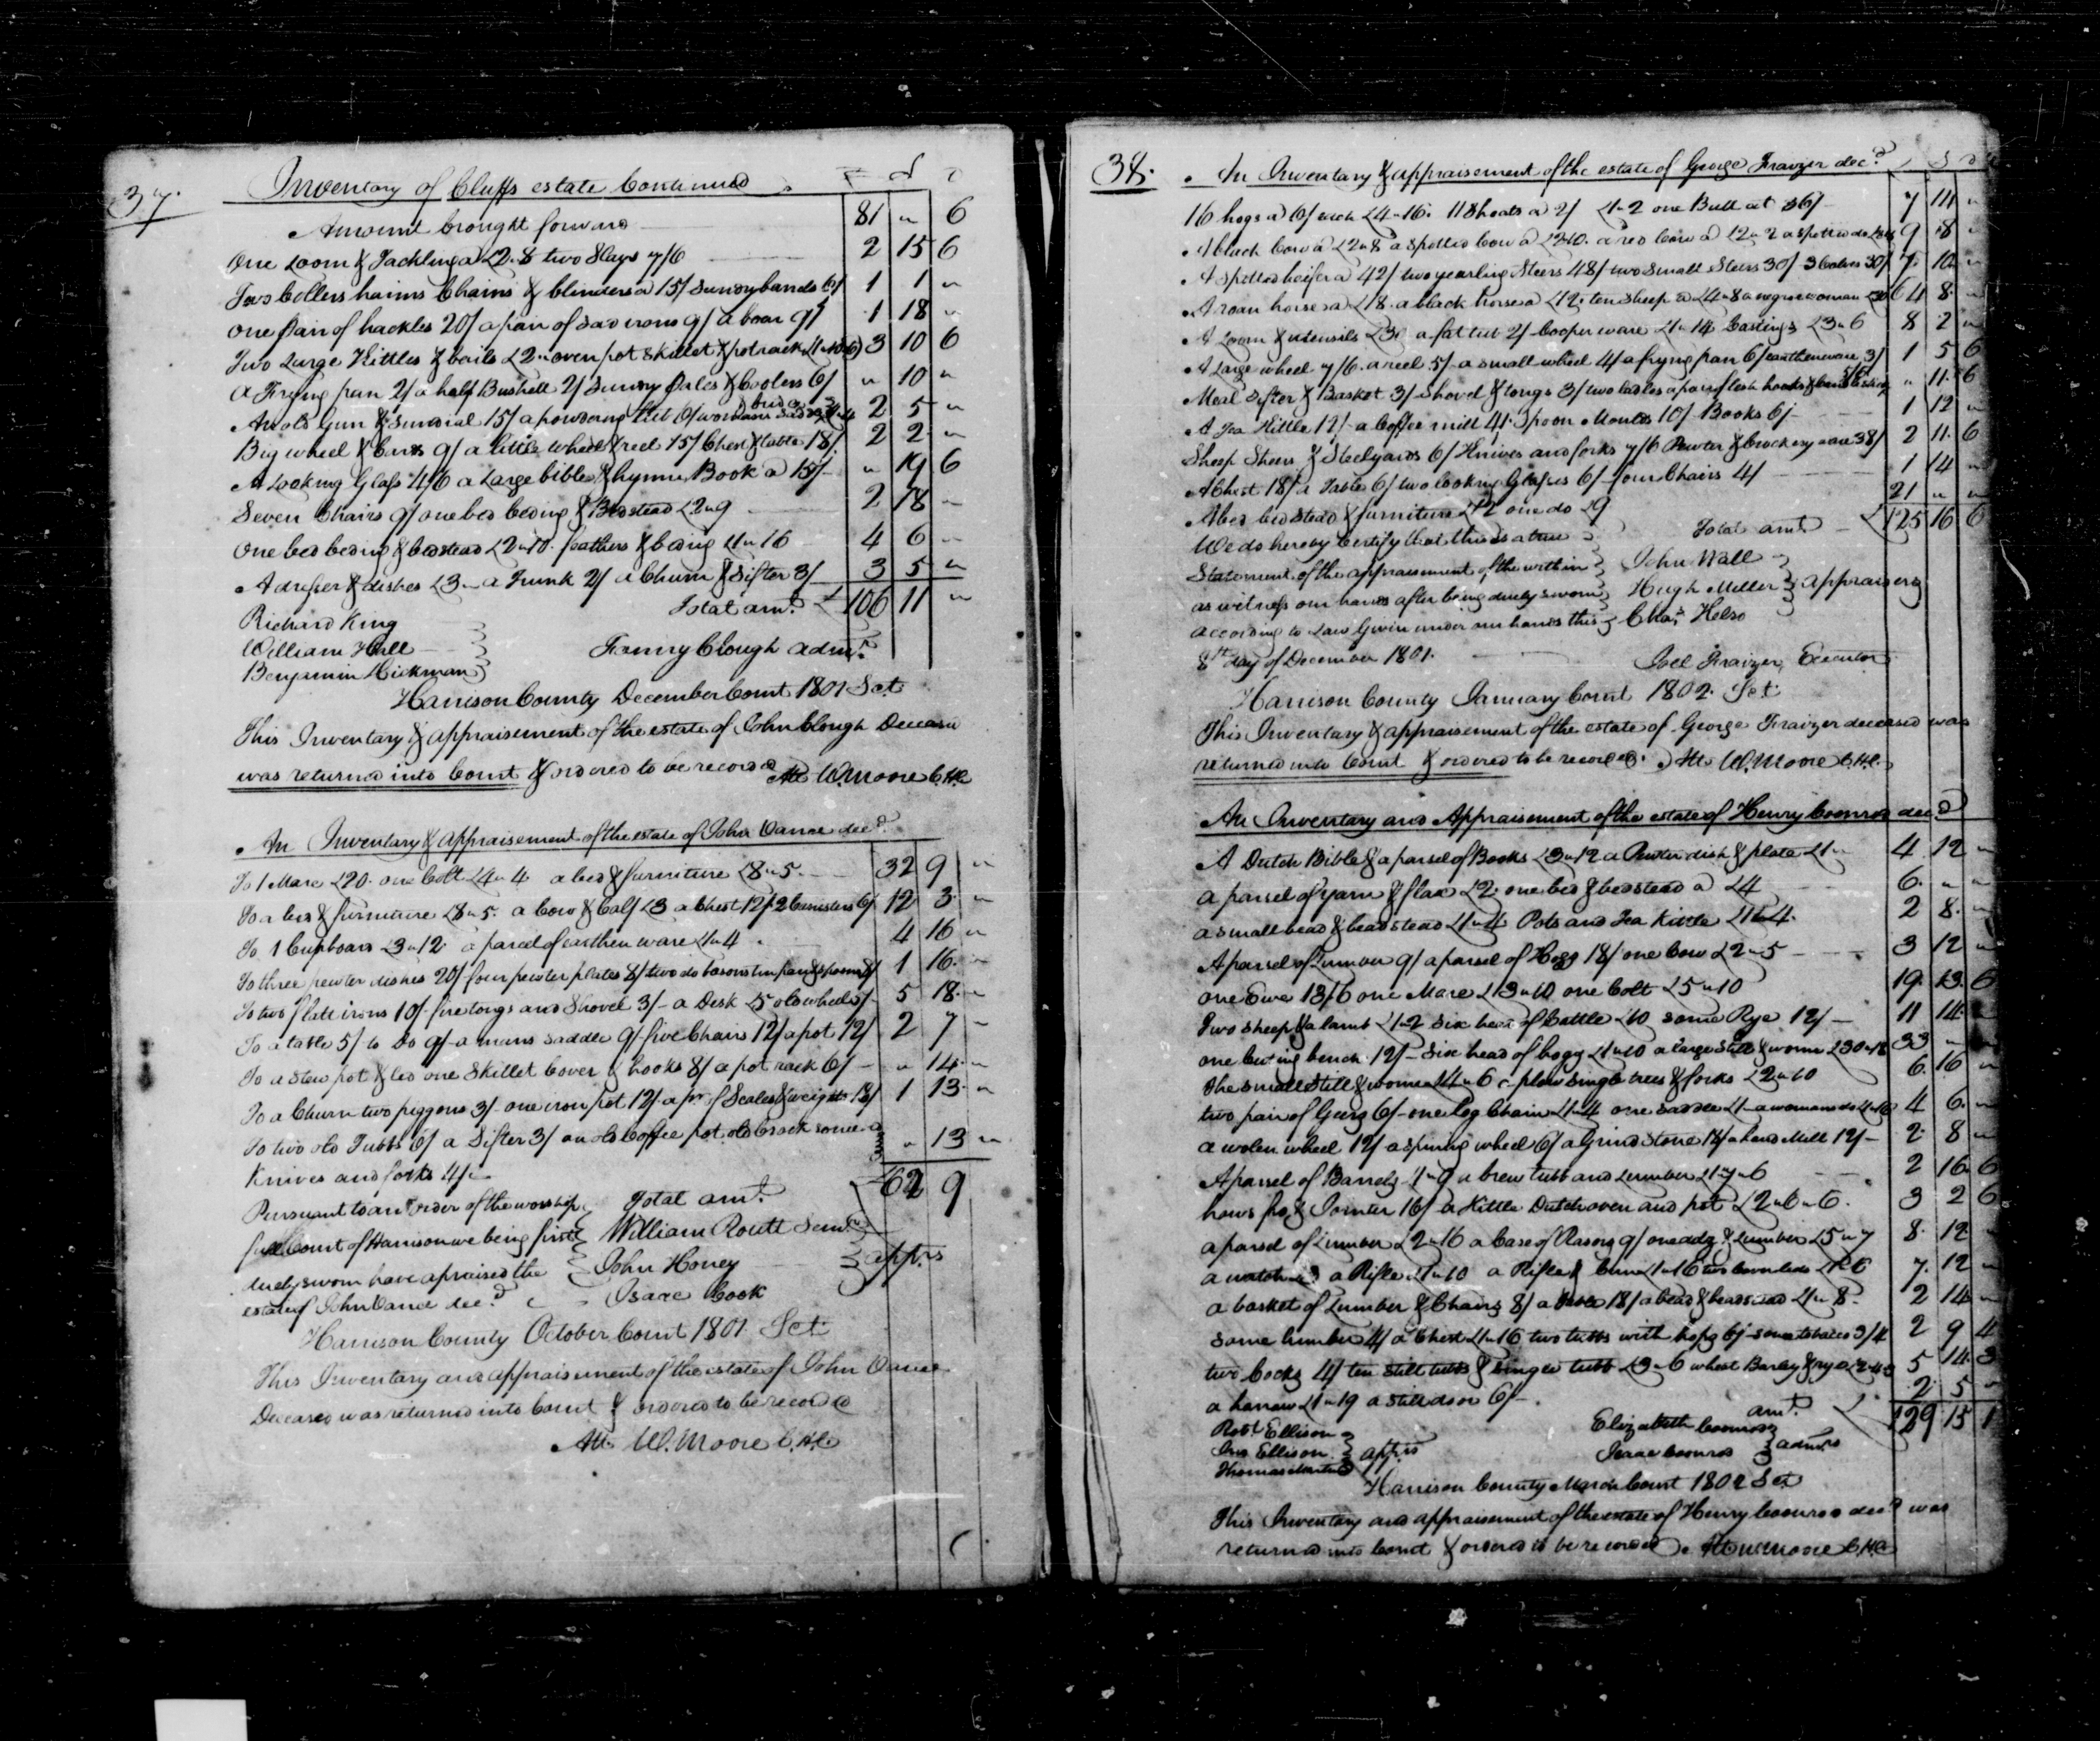 37.
Inventory of Cluffs estate Continued
Amount brought forward 81 " 6
One Loom & Tackling a £2.8 two Slays 7/6 2 15 6
Two Collers haims Chains & blinders a 15/ Sundry bands 6/ 1 1 "
one pair of hackles 20/ a pair of sad irons 9/ a boar 9/ 1 18 "
Two Large Kittles & bails £2 " oven pot Skillet & potrack £1 " 10 " 6 3 10 6
a Frying pan 2/ a half Bushell 2/ Sundry & Coolers 6/ " 10 "
An old Gun & Sundrial 15/ a powdering tub 6/ womans 2 5 "
Big wheel & Cards 9/ a little wheel & reel 15/ Chest & table 18/ 2 2 "
A Looking Glass 4/6 a Large bible & hymn Book a 15/ " 19 6
Seven Chairs 9/ one bed beding & Bedstead £2 " 9 2 18 "
One bed beding & bedstead £2 " 10. feathers & beding £1 " 16 4 6 "
A dresser & dishes £3 " a Trunk 2/ a Churn & Sifter 3/ 3 5 "
Total amt. £ 106 11 "
Richard King
William Hall Fanny Clough admr.
Benjamin Hickman
Harrison County December Court 1801 Sct
This Inventory & appraisement of the estate of John Clough Deceasd
was returned into Court & ordered to be recorded Att W. Moore C.H.C
An Inventory & appraisement of the estate of John Vance decd.
To 1 Mare £20. one Colt £4 " 4 a bed & furniture £8 " 5. 32 9 "
To a bed & furniture £8 " 5. a Cow & Calf £3 a Chest 12/ 2 Cannisters 6/ 12 3 "
To 1 Cupboard £3 " 12. a parcel of earthen ware £1 " 4. 4 16 "
To three pewter dishes 20/ four pewter plates 8/ two do basons tin pan & spoons 8/ 1 16. "
To two flatt irons 10/ fire tongs and Shovel 3/ a Desk £5 old wheel 5/ 5 18. "
To a table 5/ to Do 9/ a mans saddle 9/ five Chairs 12/ a pot 12/ 2 7 "
To a stew pot & led one Skillet Cover & hooks 8/ a pot rack 6/ " 14 "
To a Churn two piggons 3/ one iron pot 12/ a pr. of Scales & weights 18/ 1 13. "
To two old Tubbs 6/ a Sifter 3/ an old Coffee pot old Crock some
Knives and forks 4/ " 13 "
Pursuant to an Order of the worship Total amt. £62 9
full Court of Harrison we being first William Routt Senr.
duly sworn have apraised the John Honey apprs
estate of John Vance decd. Isaac Cook
Harrison County October Court 1801. Sct
This Inventory and appraisement of the estate of John Vance
Deceased was returned into Court & ordered to be recorded
Att W. Moore C.H.C.
38.
An Inventory & appraisement of the estate of George Fraizer decd.
16 hogs a 6/ each £4 " 16. 11 Shoats a 2/ £1 " 2 one Bull at 36/ 7 14 "
A black Cow a £2 " 8 a spotted Cow a £2 " 10. a red Cow a £2 " 2 a spotted do 9 8 "
A spotted heifer a 42/ two yearling Steers 48/ two small Steers 30/ 3 Calves 30/ 7 10 "
A roan horse a £18. a black horse a £12. ten sheep a £4 " 8 a negroe woman £30 64 8. "
A Loom & utensils £3 a fat tub 2/ Cooper ware £1 " 14 Castings £3 " 6 8 2 "
A Large wheel 7/6. a reel 5/ a small wheel 4/ a frying pan 6/ earthenware 3/ 1 5 6
Meal Sifter & Basket 3/ Shovel & tongs 3/ two ladles a pair of flesh hooks & 5/6 " 11. 6
A Tea Kittle 12/ a Coffee mill 4/. Spoon Moulds 10/ Books 6/ 1 12 "
Sheep Shears & Steelyards 6/ Knives and forks 7/6 Pewter & Crockery ware 38/ 2 11. 6
A Chest 18/ a Table 6/ two looking Glasses 6/ four Chairs 4/ 1 14 "
A bed bedstead & furniture £12 one do £9 21 " "
We do hereby Certify that this is a true Total amt. £125 16 6
Statement of the appraisement of the within John Wall
as witness our hands after being duely sworn Hugh Miller appraisers
according to Law Given under our hands this Chas. Kelso
8th day of December 1801. Joel Fraizer Executor
Harrison County January Court 1802. Sct
This Inventory & appraisement of the estate of George Fraizer deceased was
returned into Court & ordered to be recorded. Att W. Moore C.H.C.
An Inventory and Appraisement of the estate of Henry Coonrod decd
A Dutch Bible & a parsel of Books £3 " 12 a Pewter dish & plate £1 " 4 12 "
a parsel of yarn & flax £2. one bed & bedstead a £4 6. " "
a small bead & beadstead £1 " 4 Pots and Tea Kittle £1 " 4. 2 8. "
A parsel of Lumber 9/ a parsel of Hogg 18/ one Cow £2 " 5 3 12 "
one Ewe 13/6 one Mare £13 " 10 one Colt £5 " 10 19. 13. 6
Two sheep & a lamb £1 " 2 Six head of Cattle £10 some Rye 12/ 11 14. "
one Cuting bench 12/ Six head of hogg £1 " 10 a large Still & worm £30 " 18 33 " "
The small Still & worm £4 " 6 plow single trees & forks £2 " 10 6. 16 "
two pair of Geerg 6/ one log Chain £1 " 4 one saddle £1 " a womans do £1 " 16 4 6. "
a wolen wheel 12/ a spining wheel 6/ a Grind stone 18/ a hand Mill 12/ 2. 8 "
A parsel of Barrels 1 " 9 a brew tubb and Lumber £1 " 7 " 6 2 16 6
haws & Jointer 16/ a Kittle Dutch oven and pot £2 " 6 " 6. 3 2 6
a parsel of Lumber £2 " 16 a Case of Rasorg 9/ one adg & Lumber £5 " 7 8. 12 "
a watch a Rifle £1 " 10 a Rifle & £1 " 16 two 7. 12 "
a basket of Lumber & Chairg 8/ a 18/ a bead & beadstead £1 " 8. 2 14 "
some lumber 4/ a Chest £1 " 16 two tubbs with hopg 6/ some tobacco 3/4 2 9 4
two Cockg 4/ ten still tubbs & tubb £3 " 6 wheat Barley & rye 5 14. 3
a harrow £1 " 19 a still door 6/ 2. 5 "
Robt Ellison amt. £ 129 15 1
Jno Ellison apprs Elizabeth Coonrod
Thomas Isaac Coonrod admrs
Harrison County March Court 1802 Sct
This Inventory and appraisement of the estate of Henry Coonrod decd was
returned into Court & ordered to be recorded. Att W Moore C.H.C